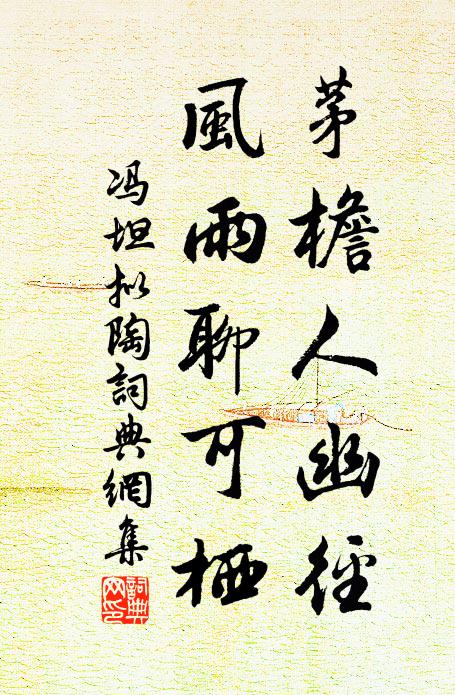 茅檐人幽徑
風雨聊可栖
冯坦拟陶詞典網集
詞典网印